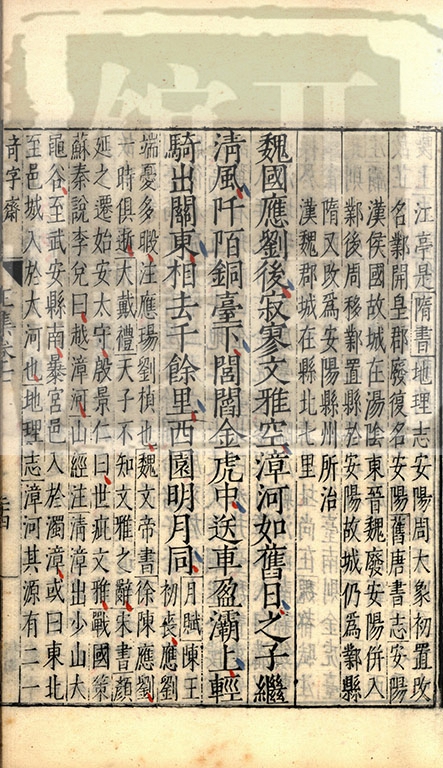 江亭是隋書地理志安陽周大象初置改
名鄴開皇郡廢復名安陽舊唐書志安陽
漢侯國故城在湯陰東晉魏廢安陽併入
鄴後周移鄴置縣於安陽故城仍為鄴縣
隋又改為安陽縣州所治
漢魏郡城在縣北七里
魏國應劉後寂寥文雅空漳河如舊日之子繼
清風阡陌銅臺下閭閻金虎中送車盈灞上輕
騎出關東相去千餘里西園明月同
月賦陳王
初喪應劉
端憂多暇注應瑒劉楨也魏文帝書徐陳應劉
一時俱逝大戴禮天子不知文雅之辭宋書顏
延之遷始安太守殷景仁曰世疵文雅戰國策
蘇秦說李兌曰越漳河山經注清漳出少山大
黽谷至武安縣南暴宮邑入於濁漳或曰東北
至邑城入於大河也地理志漳河其源有二一
奇字齋